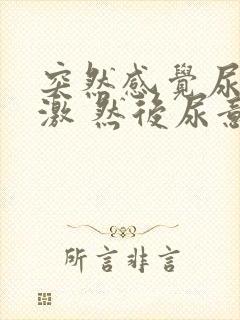 突然感覺尿
激 然後尿意
所言非言